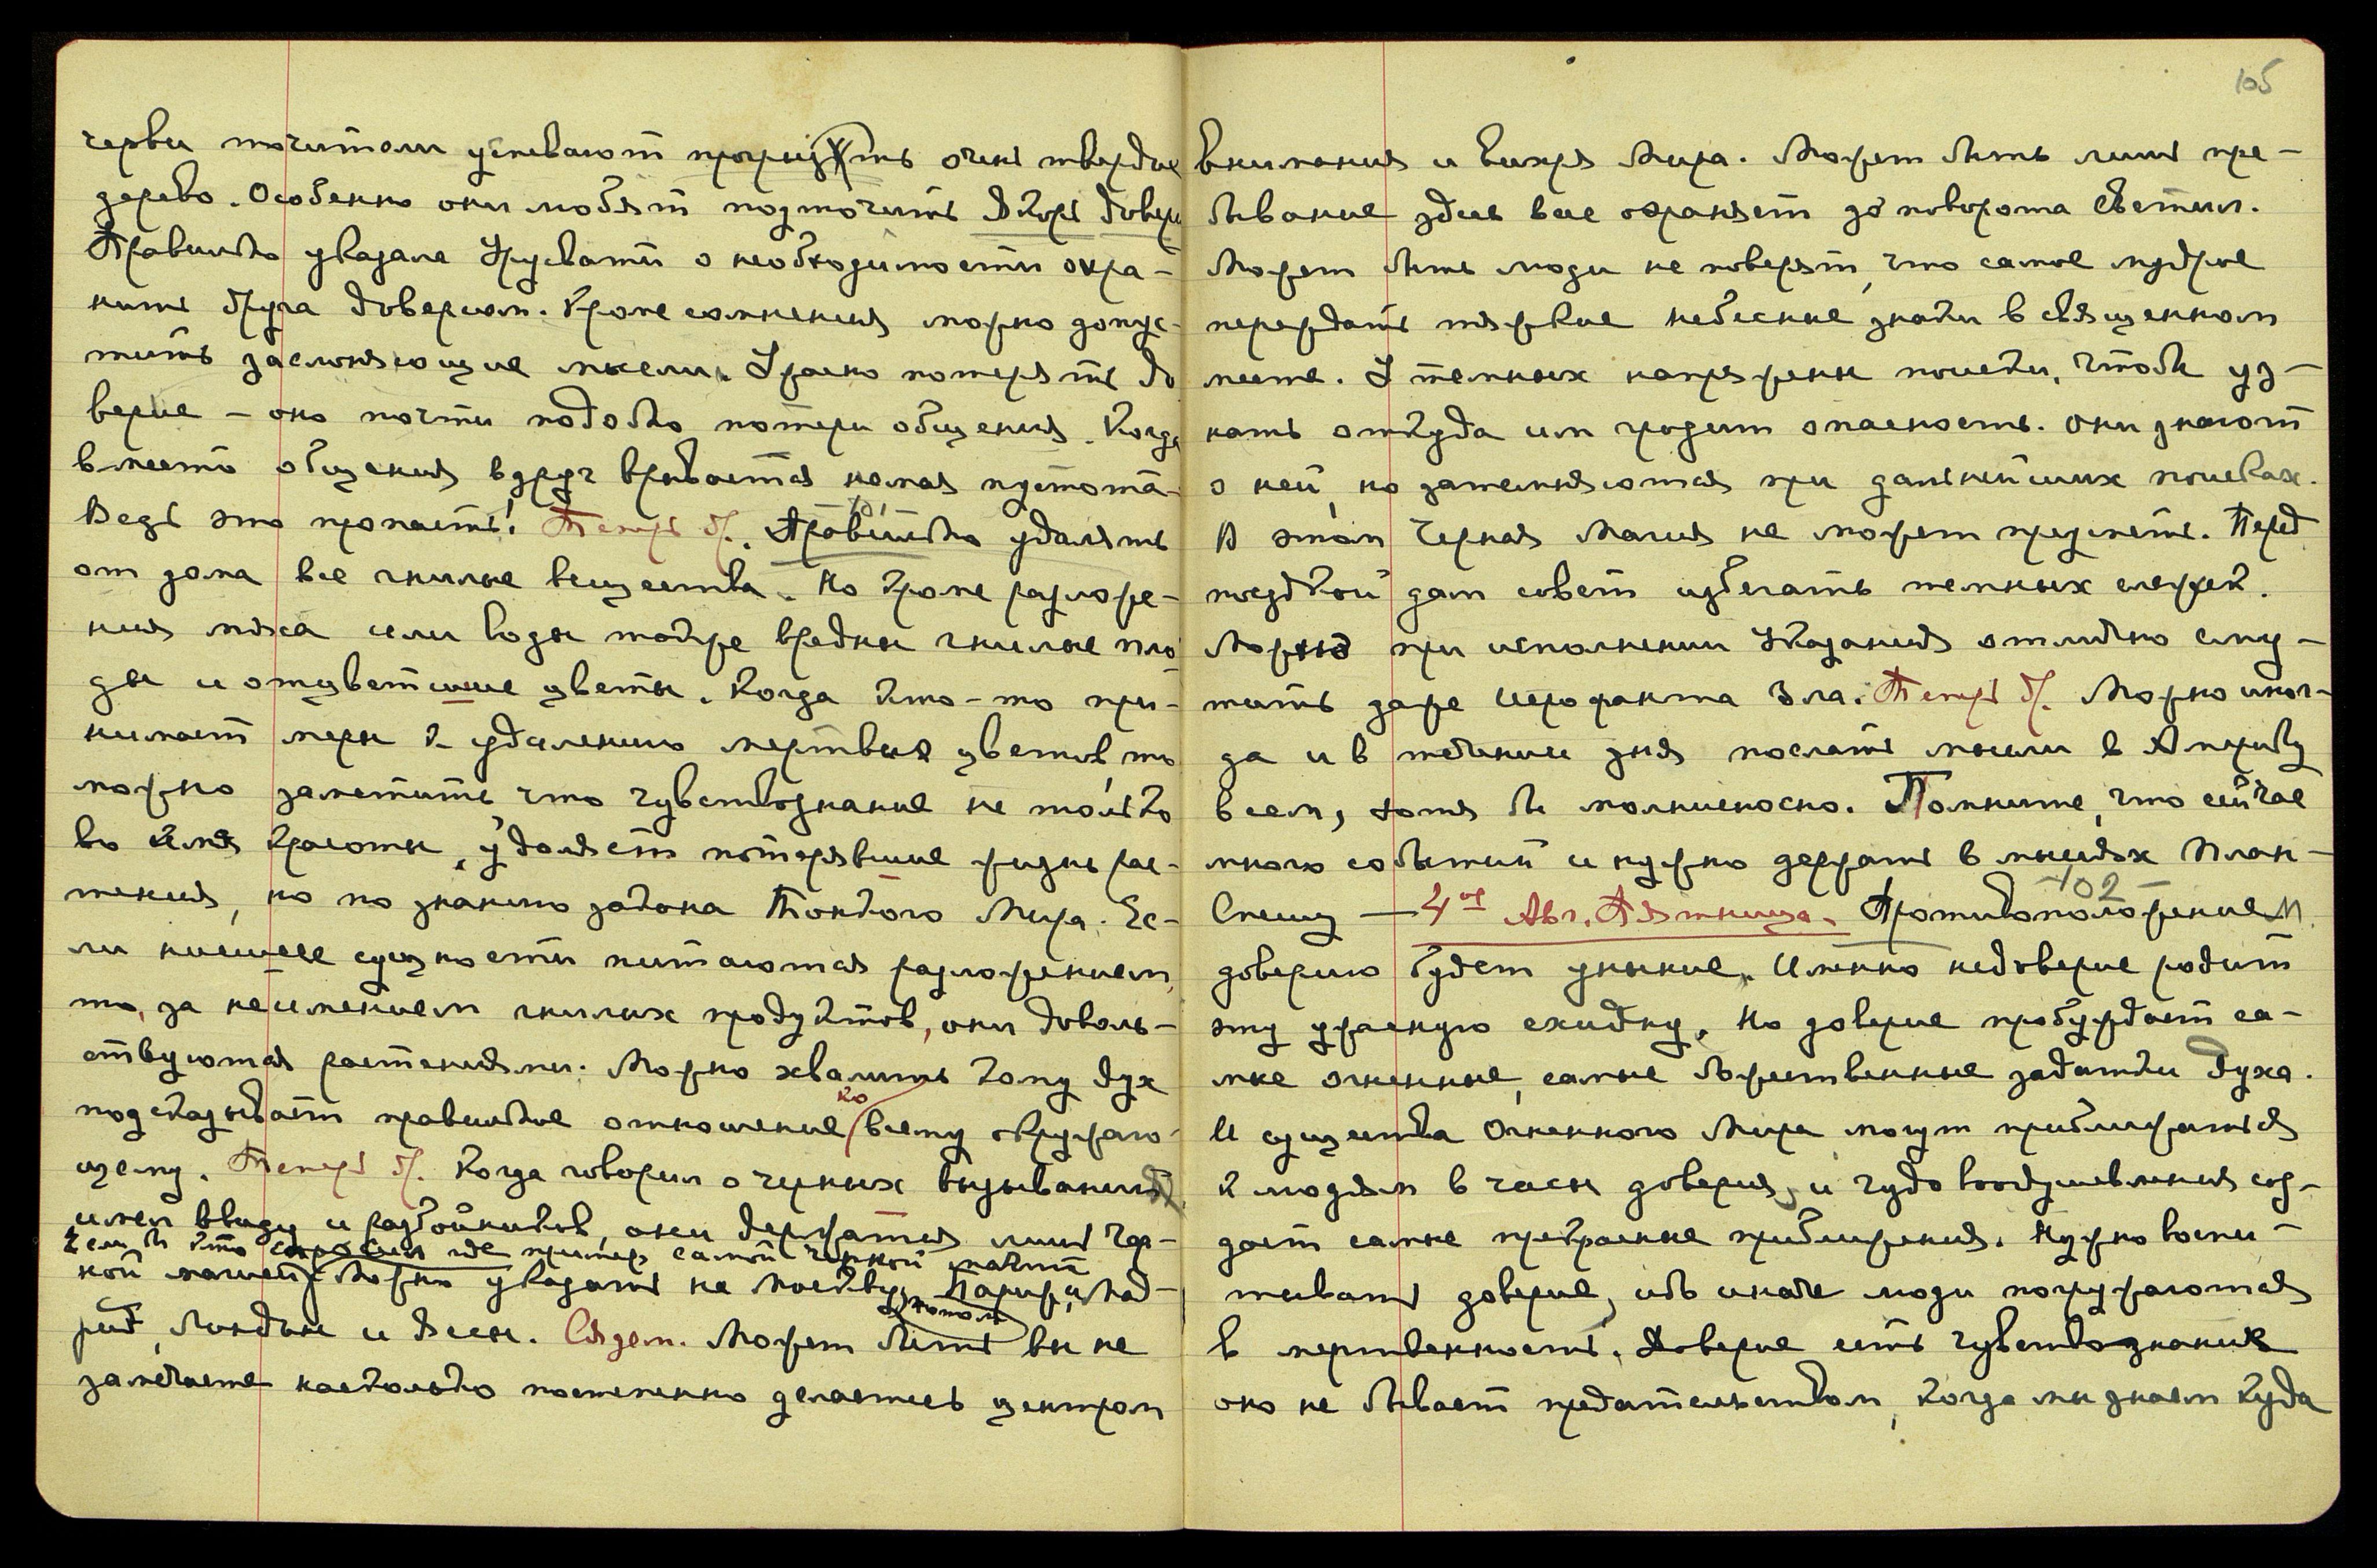 черви точители успевают прогрызть очень твердые
дерево. Особенно они любят подточить Якорь довери
Правильно указала Урусвати о необходимости охра-
нить друга доверием. Кроме сомнения можно допус-
тить заслоняющие мысли. Ужасно потерять до
верие – оно почти подобно потери общения. Когда
вместо общения вдруг врывается немая пустота.
Ведь это пропасть! Теперь др. Правильно удалять
от дома все гнилые вещества. Но кроме разложе-
ния мяса или воды также вредны гнилые пло
ды и отцветшие цветы. Когда кто-то при-
нимает меры к удалению мертвых цветов, то
можно заметить, что чувствознание не только
во имя красоты, удаляет потерявшие жизнь рас-
тения, но по знанию закона Тонкого Мира. Ес-
ли низшие сущности питаются разложением,
то, за неимением гнилых продуктов, они доволь-
ствуются растениями. Можно хвалить кому дух
ко
подсказывает правильное отношение всему окружаю-
щему. Теперь др. Когда говорил о черных вызываниях
имел ввиду и разбойников, они держатся лишь чер-
Если б кто спросил где пример самой черной магии
ной магией. Можно указать на Москву, Париж, и Мад-
потом
рид, Лондон и Вена. Сядем. Может быть вы не
замечаете насколько постепенно делаетесь центром
105
внимания и вихря Мира. Может быть лишь пре-
бывание здесь вас охраняет до поворота Светил.
Может быть люди не поверят, что самое мудрое
переждать тяжкие небесные знаки в священном
месте. У темных напряжены поиски, чтобы уз-
нать откуда им грозит опасность. Они знают
о ней, но затемняются при дальнейших поисках.
В этом Черная Магия не может преуспеть. Перед
поездкой дам совет избегать темных слежек.
Можно при исполнении Указания отлично сму-
тить даже Иерофанта Зла. Теперь др. Можно иног-
да и в течении дня послать мысли в Америку
всем, хотя бы молниеносно. Помните, что сейчас
много событий и нужно держать в мыслях план-
102
Спешу – 4ое Авг. Пятница. Противоположением
доверию будет уныние. Именно недоверие родит
эту ужасную ехидну. Но доверие пробуждает са-
мые огненные, самые божественные задатки духа.
И существа Огненного Мира могут приближаться
к людям в часы доверия, и чудо воодушевления соз-
дает самые прекрасные приближения. Нужно воспи-
тывать доверие, ибо иначе люди погружаются
в мертвенность. Доверие есть чувствознание
оно не бывает предательством, когда мы знаем куда